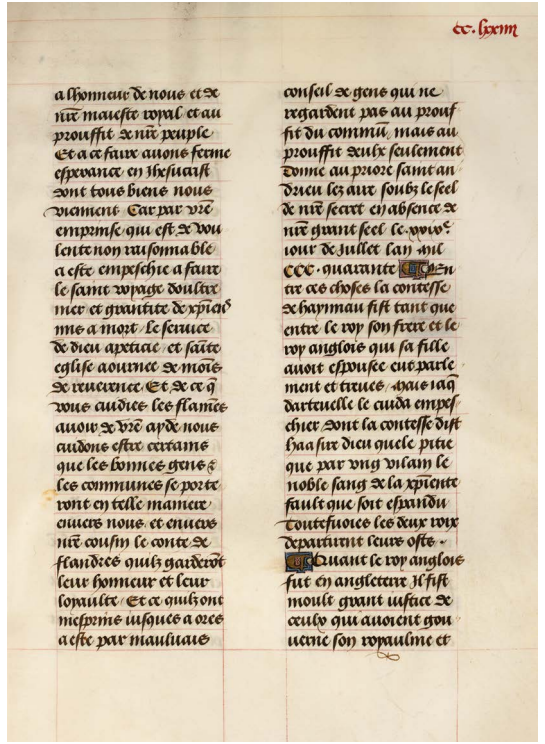 CC·lxxiiii
a lhonneur de nous et de
nr̄e maieste royal et au
prouffit de nr̄e peuple
Et a ce faire auons ferme
esperance en Jhesucrist
dont tous biens nous
viennent Car par vr̄e
emprinse qui est de vou
lente non raisonnable
a este empeschie a faire
le saint voyage doultre
mer et grantite de xp̄iens
mis a mort le seruice
de dieu apeticie et sāte
eglise aournee de mois
de reuerence Et de ce q̄
vous cuidies les flamēs
auoir de vr̄e ayde nous
cuidons estre certains
que les bonnes gens ⁊
les communes se porte
ront en telle maniere
enuers nous et enuers
nr̄e cousin le conte de
flandres quilz garderōt
leur honneur et leur
loyaulte Et ce quilz ont
mesprins iusques a ores
a este par mauluais
conseil de gens qui ne
regardent pas au prouf
fit du commū mais au
prouffit deulx seulement
Donne au priore saint an
drieu lez aire soubz le seel
de nr̄e secret en absence de
nr̄e grant seel le
iour de Jullet lan mil
CCC·quarante En
tre ces choses la contesse
de haynnau fist tant que
entre le roy son frere et le
roy anglois qui sa fille
auoit espousee eut parle
ment et treues Mais iaq̄
dartevelle le cuida empes
chier dont la contesse dist
haa sire dieu quele pitie
que par vng vilain le
noble sang de la xp̄iente
fault que soit espandu
Toutefuoies les deux roix
departirent leurs osts.
Quant le roy anglois
fut en angleterre Il fist
moult grant iustice de
ceulx qui auoient gou
uerne son royaulme et